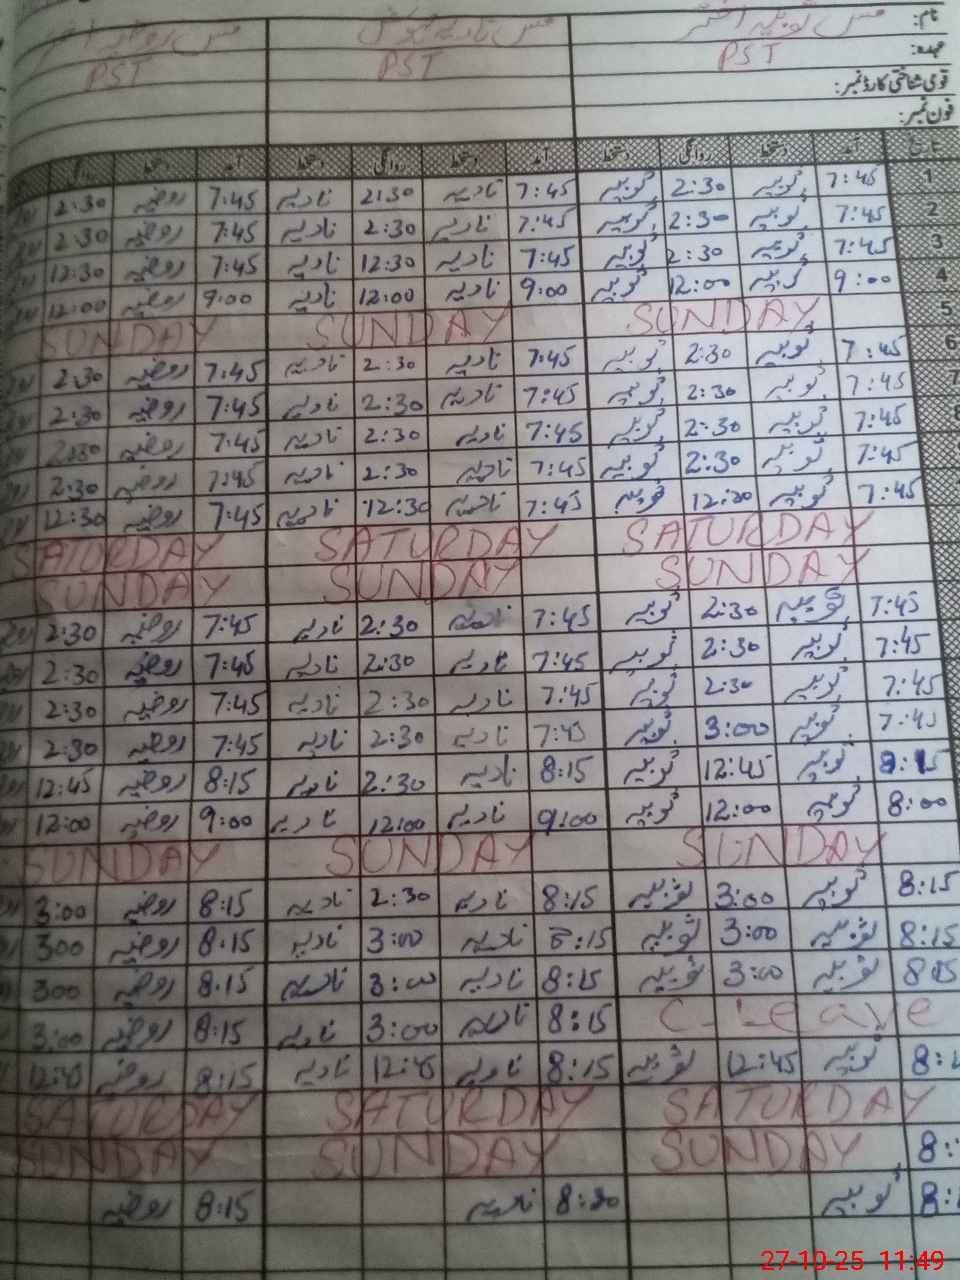 نام: مس ثوبیہ اختر مس نادیہ مس روضیہ
عہدہ: PST PST PST
قومی شناختی کارڈ نمبر:
فون نمبر:
تاریخ آمد دستخط روانگی دستخط آمد دستخط روانگی دستخط آمد دستخط روانگی
1 7:45 ثوبیہ 2:30 ثوبیہ 7:45 نادیہ 2:30 نادیہ 7:45 روضیہ 2:30
2 7:45 ثوبیہ 2:30 ثوبیہ 7:45 نادیہ 2:30 نادیہ 7:45 روضیہ 2:30
3 7:45 ثوبیہ 2:30 ثوبیہ 7:45 نادیہ 12:30 نادیہ 7:45 روضیہ 12:30
4 9:00 ثوبیہ 12:00 ثوبیہ 9:00 نادیہ 12:00 نادیہ 9:00 روضیہ 12:00
5 SUNDAY SUNDAY SUNDAY
6 7:45 ثوبیہ 2:30 ثوبیہ 7:45 نادیہ 2:30 نادیہ 7:45 روضیہ 2:30
7 7:45 ثوبیہ 2:30 ثوبیہ 7:45 نادیہ 2:30 نادیہ 7:45 روضیہ 2:30
7:45 ثوبیہ 2:30 ثوبیہ 7:45 نادیہ 2:30 نادیہ 7:45 روضیہ 2:30
7:45 ثوبیہ 2:30 ثوبیہ 7:45 نادیہ 2:30 نادیہ 7:45 روضیہ 2:30
7:45 ثوبیہ 12:30 ثوبیہ 7:45 نادیہ 12:30 نادیہ 7:45 روضیہ 12:30
SATURDAY SATURDAY SATURDAY
SUNDAY SUNDAY SUNDAY
7:45 ثوبیہ 2:30 ثوبیہ 7:45 نادیہ 2:30 نادیہ 7:45 روضیہ 2:30
7:45 ثوبیہ 2:30 ثوبیہ 7:45 نادیہ 2:30 نادیہ 7:45 روضیہ 2:30
7:45 ثوبیہ 2:30 ثوبیہ 7:45 نادیہ 2:30 نادیہ 7:45 روضیہ 2:30
7:45 ثوبیہ 3:00 ثوبیہ 7:45 نادیہ 2:30 نادیہ 7:45 روضیہ 2:30
8:15 ثوبیہ 12:45 ثوبیہ 8:15 نادیہ 2:30 نادیہ 8:15 روضیہ 12:45
8:00 ثوبیہ 12:00 ثوبیہ 9:00 نادیہ 12:00 نادیہ 9:00 روضیہ 12:00
SUNDAY SUNDAY SUNDAY
8:15 ثوبیہ 3:00 ثوبیہ 8:15 نادیہ 2:30 نادیہ 8:15 روضیہ 3:00
8:15 ثوبیہ 3:00 ثوبیہ 8:15 نادیہ 3:00 نادیہ 8:15 روضیہ 300
8:15 ثوبیہ 3:00 ثوبیہ 8:15 نادیہ 3:00 نادیہ 8:15 روضیہ 300
C-Leave 8:15 نادیہ 3:00 نادیہ 8:15 روضیہ 3:00
ثوبیہ 12:45 ثوبیہ 8:15 نادیہ 12:45 نادیہ 8:15 روضیہ 12:45
SATURDAY SATURDAY SATURDAY
SUNDAY SUNDAY SUNDAY
ثوبیہ 8:20 نادیہ 8:15 روضیہ
27-10-25 11:49